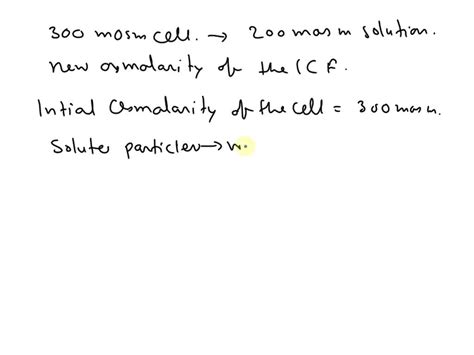 300 mosm cell. → 200 mosm solution.
new osmolarity of the ICF.
Intial Osmolarity of the cell = 300 mosm.
Solute particles → w